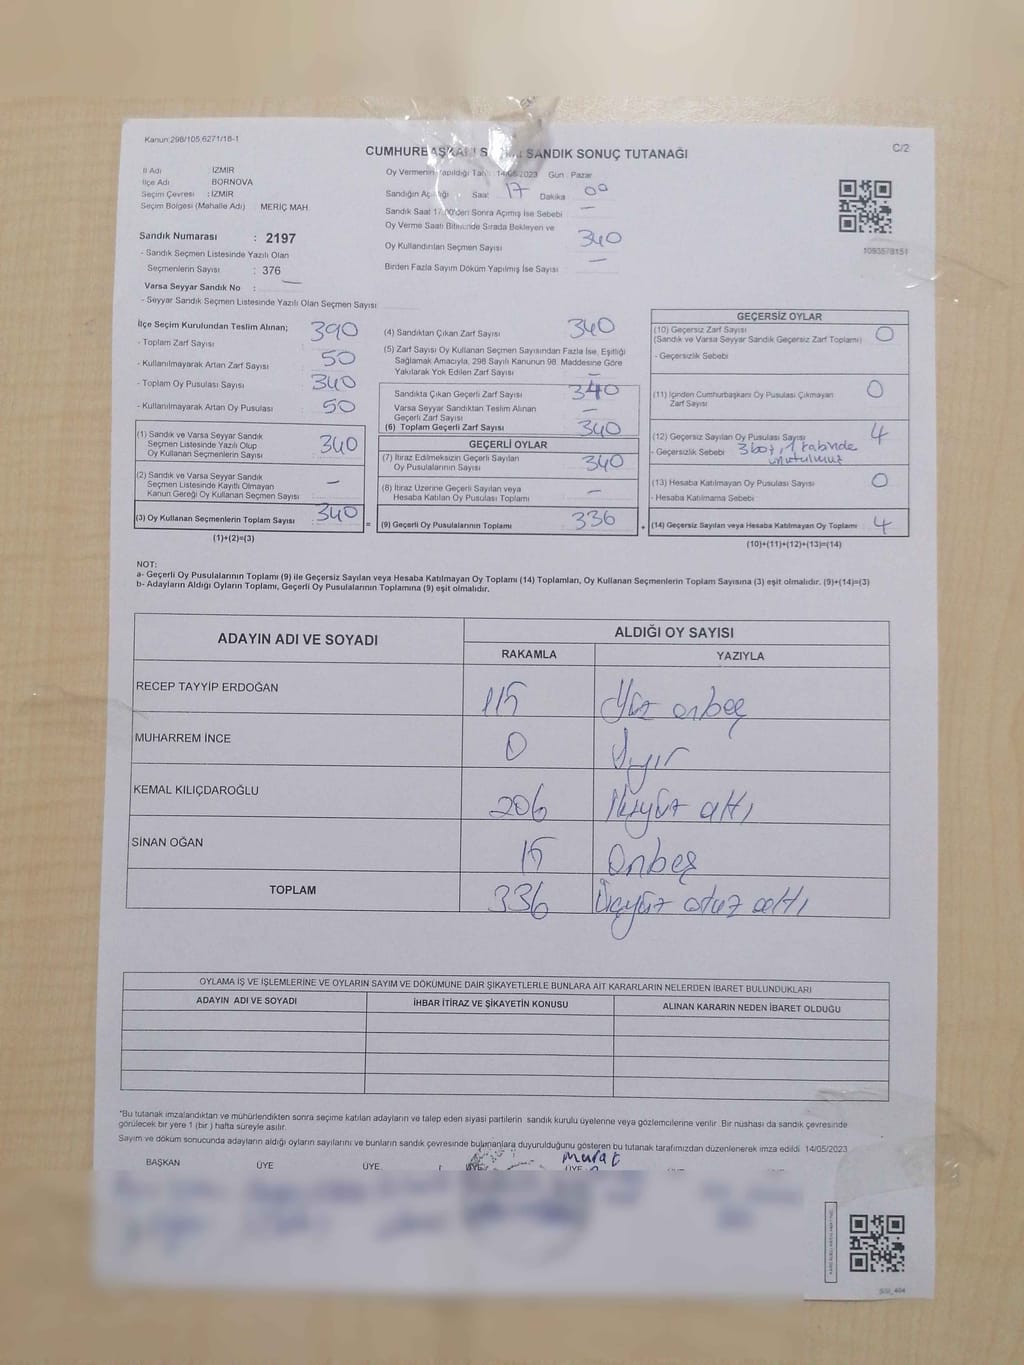 Kanun:298/105,6271/18-1
C/2
CUMHURBAŞKANI SANDIK SONUÇ TUTANAĞI
İl Adı : İZMİR
İlçe Adı : BORNOVA
Seçim Çevresi : İZMİR
Seçim Bölgesi (Mahalle Adı) : MERİÇ MAH.
Sandık Numarası : 2197
- Sandık Seçmen Listesinde Yazılı Olan
Seçmenlerin Sayısı : 376
Varsa Seyyar Sandık No : —
- Seyyar Sandık Seçmen Listesinde Yazılı Olan Seçmen Sayısı
Oy Vermenin Yapıldığı Tarih 14/05/2023 Gün : Pazar
Sandığın Açıldığı Saat 17 Dakika 00
Sandık Saat 17.00'den Sonra Açılmış İse Sebebi —
Oy Verme Saati Bitiminde Sırada Bekleyen ve
Oy Kullandırılan Seçmen Sayısı 340
Birden Fazla Sayım Döküm Yapılmış İse Sayısı —
1093578151
İlçe Seçim Kurulundan Teslim Alınan;
- Toplam Zarf Sayısı 390
- Kullanılmayarak Artan Zarf Sayısı 50
- Toplam Oy Pusulası Sayısı 340
- Kullanılmayarak Artan Oy Pusulası 50
(1) Sandık ve Varsa Seyyar Sandık
Seçmen Listesinde Yazılı Olup
Oy Kullanan Seçmenlerin Sayısı 340
(2) Sandık ve Varsa Seyyar Sandık
Seçmen Listesinde Kayıtlı Olmayan
Kanun Gereği Oy Kullanan Seçmen Sayısı —
(3) Oy Kullanan Seçmenlerin Toplam Sayısı 340
(1)+(2)=(3)
=
(4) Sandıktan Çıkan Zarf Sayısı 340
(5) Zarf Sayısı Oy Kullanan Seçmen Sayısından Fazla İse, Eşitliği
Sağlamak Amacıyla, 298 Sayılı Kanunun 98. Maddesine Göre
Yakılarak Yok Edilen Zarf Sayısı —
Sandıkta Çıkan Geçerli Zarf Sayısı 340
Varsa Seyyar Sandıktan Teslim Alınan
Geçerli Zarf Sayısı —
(6) Toplam Geçerli Zarf Sayısı 340
GEÇERLİ OYLAR
(7) İtiraz Edilmeksizin Geçerli Sayılan
Oy Pusulalarının Sayısı 340
(8) İtiraz Üzerine Geçerli Sayılan veya
Hesaba Katılan Oy Pusulası Toplamı —
(9) Geçerli Oy Pusulalarının Toplamı 336
+
GEÇERSİZ OYLAR
(10) Geçersiz Zarf Sayısı 0
(Sandık ve Varsa Seyyar Sandık Geçersiz Zarf Toplamı)
- Geçersizlik Sebebi
(11) İçinden Cumhurbaşkanı Oy Pusulası Çıkmayan
Zarf Sayısı 0
(12) Geçersiz Sayılan Oy Pusulası Sayısı 4
- Geçersizlik Sebebi 3 boş, 1 kabinde
unutulmuş
(13) Hesaba Katılmayan Oy Pusulası Sayısı 0
- Hesaba Katılmama Sebebi
(14) Geçersiz Sayılan veya Hesaba Katılmayan Oy Toplamı 4
(10)+(11)+(12)+(13)=(14)
NOT:
a- Geçerli Oy Pusulalarının Toplamı (9) ile Geçersiz Sayılan veya Hesaba Katılmayan Oy Toplamı (14) Toplamları, Oy Kullanan Seçmenlerin Toplam Sayısına (3) eşit olmalıdır. (9)+(14)=(3)
b- Adayların Aldığı Oyların Toplamı, Geçerli Oy Pusulalarının Toplamına (9) eşit olmalıdır.
ADAYIN ADI VE SOYADI
ALDIĞI OY SAYISI
RAKAMLA YAZIYLA
RECEP TAYYİP ERDOĞAN 115 Yüz onbeş
MUHARREM İNCE 0 Sıfır
KEMAL KILIÇDAROĞLU 206 İkiyüz altı
SİNAN OĞAN 15 Onbeş
TOPLAM 336 Üçyüz otuz altı
OYLAMA İŞ VE İŞLEMLERİNE VE OYLARIN SAYIM VE DÖKÜMÜNE DAİR ŞİKAYETLERLE BUNLARA AİT KARARLARIN NELERDEN İBARET BULUNDUKLARI
ADAYIN ADI VE SOYADI İHBAR İTİRAZ VE ŞİKAYETİN KONUSU ALINAN KARARIN NEDEN İBARET OLDUĞU
*Bu tutanak imzalandıktan ve mühürlendikten sonra seçime katılan adayların ve talep eden siyasi partilerin sandık kurulu üyelerine veya gözlemcilerine verilir. Bir nüshası da sandık çevresinde
görülecek bir yere 1 (bir) hafta süreyle asılır.
Sayım ve döküm sonucunda adayların aldığı oyların sayılarını ve bunların sandık çevresinde bulunanlara duyurulduğunu gösteren bu tutanak tarafımızdan düzenlenerek imza edildi. 14/05/2023
BAŞKAN ÜYE ÜYE ÜYE Murat ÜYE